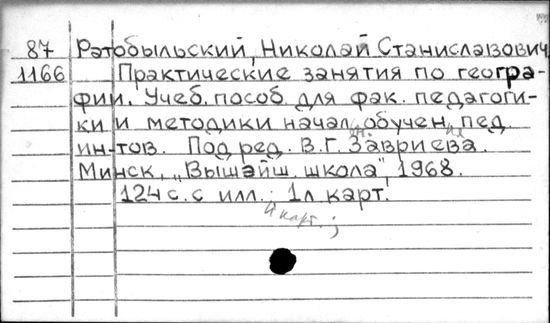 87 Ратобыльский, Николай Станиславович
1166 Практические занятия по геогра-
фии. Учеб. пособ. для фак. педагоги-
ки и методики начал. обучен. пед.
ин-тов. Под ред. В.Г. Завриева.
Минск, „Вышэйш. школа", 1968.
124 с. с илл.; 1 л. карт.
и карт.;